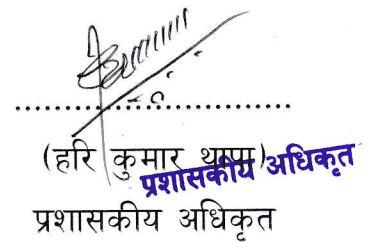 (हरि कुमार थापा)
प्रशासकीय अधिकृत
प्रशासकीय अधिकृत